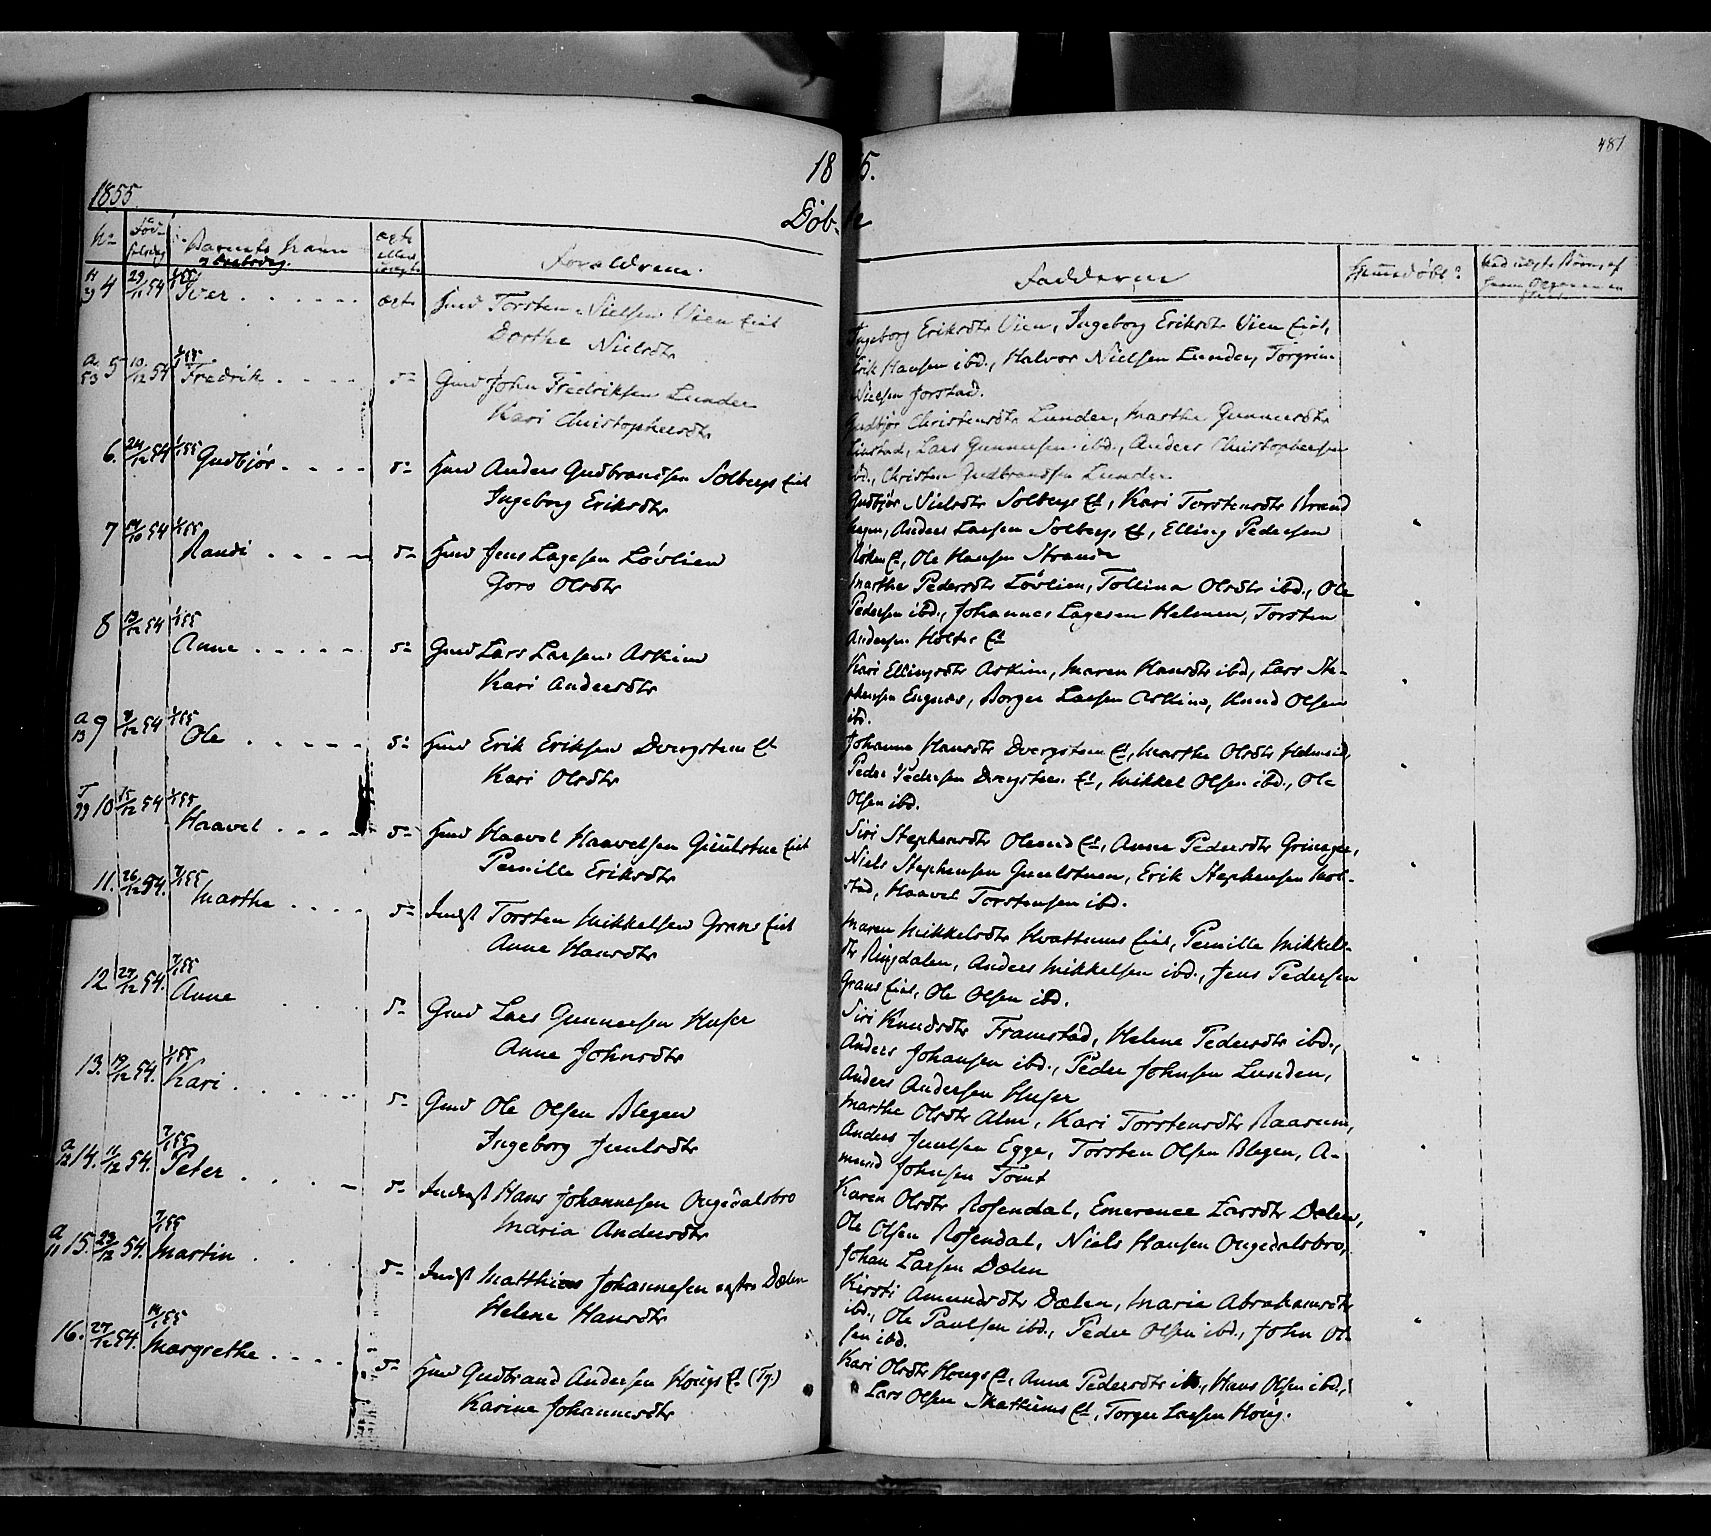 481
1855.
1855.
Døbte
No Fødselsdag Barnets Navn og Daabsdag. ægte eller uægte Forældrene. Fadderne Hjemmedøbt?
4 29/11 54 1/1 55 Iver ægte Hmd Torsten Nielsen Vien Eiet
Dorthe Nielsdtr
Ingeborg Eriksdtr Vien, Ingeborg Eriksdtr Vien Eiet,
Erik Hansen ibd., Halvor Nielsen Lunder, Torgrim
Nielsen Jorstad.
5 10/12 54 1/1 55 Fredrik do Gmd John Fredriksen Lunder
Kari Christophersdtr
Gudbjør Christensdtr Lunder, Marthe Gunnersdtr
Lars Gunnersen ibd., Anders Christophersen
ibd., Christen Gudbrandsen Lunder
6. 24/12 54 1/1 55 Gudbjør do Hmd Anders Gudbrandsen Solbergs Eiet
Ingeborg Eriksdtr
Gudbjør Nielsdtr Solbergs Et, Kari Torstensdtr Brænd
hagen, Anders Larsen Solbergs Et, Elling Pedersen
Et, Ole Hansen Strande
7 54 1/1 55 Randi do Hmd Jens Lagesen Løvlien
Goro Olsdtr
Marthe Pedersdtr Løvlien, Tollina Olsdtr ibd., Ole
Pedersen ibd., Johannes Lagesen Helmen, Torsten
Andersen Holter Et
8 13/12 54 1/1 55 Anne do Gmd Lars Larsen Askim
Kari Andersdtr
Kari Ellingsdtr Askim, Maren Hansdtr ibd, Lars Ste-
phensen Engnæs, Borger Larsen Askim, Knud Olsen
ibd.
9 54 1/1 55 Ole do Hmd Erik Eriksen Dvergsten Et
Kari Olsdtr
Johanne Hansdtr Dvergsten Et, Marthe Olsdtr Helmeid,
Peder Pedersen Dvergsten Et, Mikkel Olsen ibd., Ole
Olsen ibd.
10 15/12 54 1/1 55 Haavel do Hmd Haavel Haavelsen Giulstue Eiet
Pernille Eriksdtr
Siri Stephensdtr Olerud Et, Anne Pedersdtr Grinager,
Niels Stephensen Gulstuen, Erik Stephensen Mol-
stad, Haavel Torstensen ibd.
11. 26/12 54. 7/1 55 Marthe do Indst Torsten Mikkelsen Grans Eiet
Anne Hansdtr
Maren Mikkelsdtr Hvattums Eiet, Pernille Mikkels-
dtr Ringdalen, Anders Mikkelsen ibd., Jens Pedersen
Grans Eiet, Ole Olsen ibd.
12. 27/12 54. 7/1 55 Anne do Gmd Lars Gunnersen Huser
Anne Johnsdtr
Siri Knudsdtr Framstad, Helene Pedersdtr ibd.,
Anders Johansen ibd., Peder Johnsen Lunden,
Anders Andersen Huser
13. 19/12 54. 1/1 55 Kari do Gmd Ole Olsen Blegen
Ingeborg Juulsdtr
Marthe Olsdtr Alm, Kari Torstensdtr Raasum,
Anders Juulsen Egge, Torsten Olsen Blegen, A-
mund Johnsen Tomt
14. 11/12 54. 7/1 55 Peter do Inderst Hans Johannesen Augedalsbro
Maria Andersdtr
Karen Olsdtr Rosendal, Emerence Larsdtr Dælen,
Ole Olsen Rosendal, Niels Hansen Augedalsbro,
Johan Larsen Dælen
15. 23/12 54. 7/1 55 Martin do Indst Matthias Johannesen østre Dælen
Helene Hansdtr
Kirsti Amundsdtr Dælen, Maria Abrahamsdtr
ibd., Ole Paulsen ibd., Peder Olsen ibd., John Ol-
sen ibd.
16. 27/12 54. 14/1 55 Margrethe do Hmd Gudbrand Andersen Hougs Et. (Tg.)
Karine Johannesdtr
Kari Olsdtr Hougs Et, Anna Pedersdtr ibd., Hans Olsen ibd.,
Lars Olsen Skattums Et, Torger Larsen Houg.